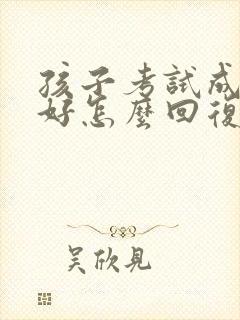 孩子考試成
好怎麼回復
吴欣見